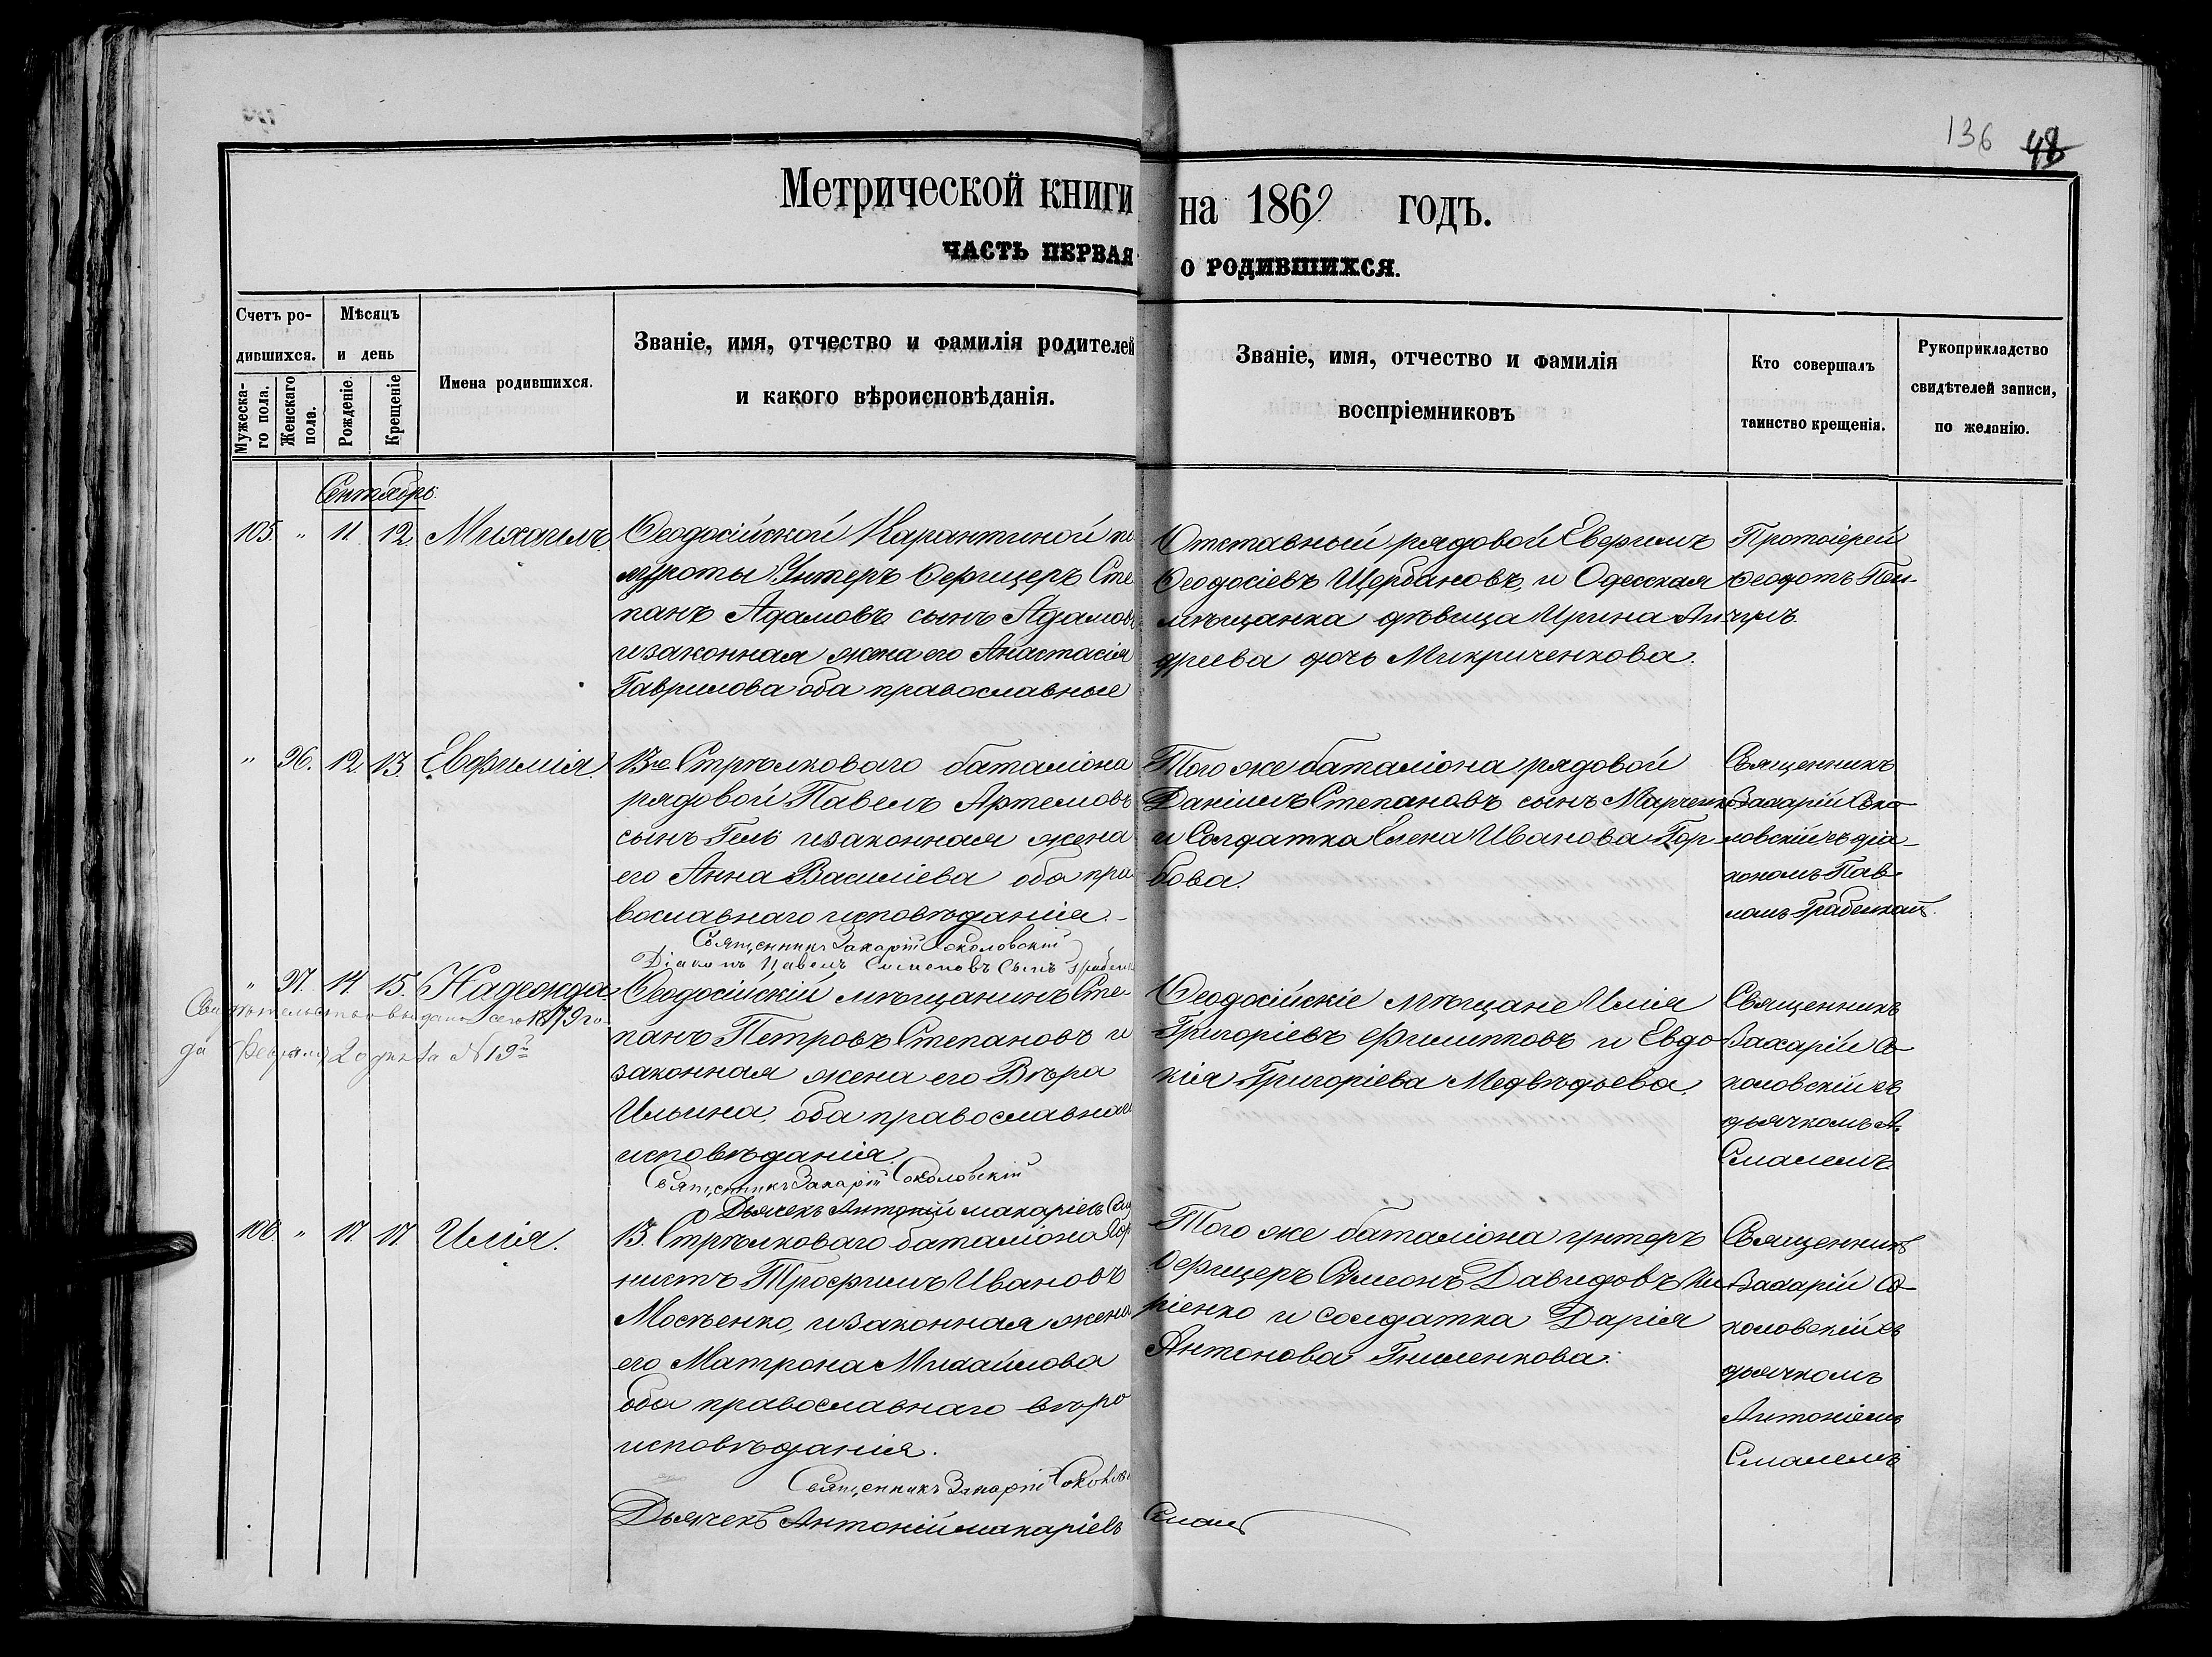 136 48
Метрической книги на 1869 годъ.
ЧАСТЬ ПЕРВАЯ О РОДИВШИХСЯ.
Счетъ родившихся.
Мужескаго пола.
Женскаго пола.
Мѣсяцъ и день
Рожденіе.
Крещеніе
Имена родившихся.
Званіе, имя, отчество и фамилія родителей
и какого вѣроисповѣданія.
Званіе, имя, отчество и фамилія
воспріемниковъ
Кто совершалъ
таинство крещенія.
Рукоприкладство
свидѣтелей записи,
по желанію.
Сентябрь.
105. " 11. 12. Михаилъ.
Ѳеодосійской Карантиной
роты Унтеръ Офицеръ Сте
панъ Адамовъ сынъ Адамовъ
и законная жена его Анастасія
Гаврилова оба православные
Отставный рядовой Евфимъ
Ѳеодосіевъ Щербановъ, и Одесская
мѣщанка дѣвица Ирина Ан
дреева дочь Микриченкова.
Протоіерей
Ѳеодотъ
" 96. 12. 13. Евфимія.
13го Стрѣлковаго баталіона
рядовой Павелъ Артемовъ
сынъ Гель и законная жена
его Анна Василіева оба пра
вославнаго исповѣданія.-
Священникъ Захарій Соколовскій
Діаконъ Павелъ Симеоновъ Сынъ
Того же баталіона рядовой
Даніилъ Степановъ сынъ Марченко
и Солдатка Елена Иванова Гор
бова.
Священникъ
Захарій Соко
ловскій съ діа-
кономъ Пав-
ломъ
" 97. 14. 15. Надежда.
Свидѣтельство выдано сего 1879 го
да Февраля 20 дня за N 19м
Ѳеодосійскій мѣщанинъ Сте-
панъ Петровъ Степановъ и
законная жена его Вѣра
Ильина, оба православнаго
исповѣданія.
Священникъ Захарій Соколовскій
Дьячекъ Антоній Макаріевъ
Ѳеодосійскіе мѣщане Илія
Григоріевъ Филипповъ и Евдо
кія Григоріева Медвѣдьева.
Священникъ
Захарій Со
коловскій съ
дьячкомъ А.
Смалемъ
106. " 17. 17. Илія.
13. Стрѣлковаго баталіона Гор
нистъ Трофимъ Ивановъ
Мосѣенко, и законная жена
его Матрона Михайлова
оба православнаго вѣро
исповѣданія.
Священникъ Захарій Соколов
Дьячекъ Антоній Макаріевъ Смаль
Того же баталіона унтеръ
Офицеръ Симеонъ Давидовъ
ріенко и солдатка Дарія
Антонова Гниленкова.
Священникъ
Захарій Со
коловскій съ
дьячкомъ
Антоніемъ
Смалемъ